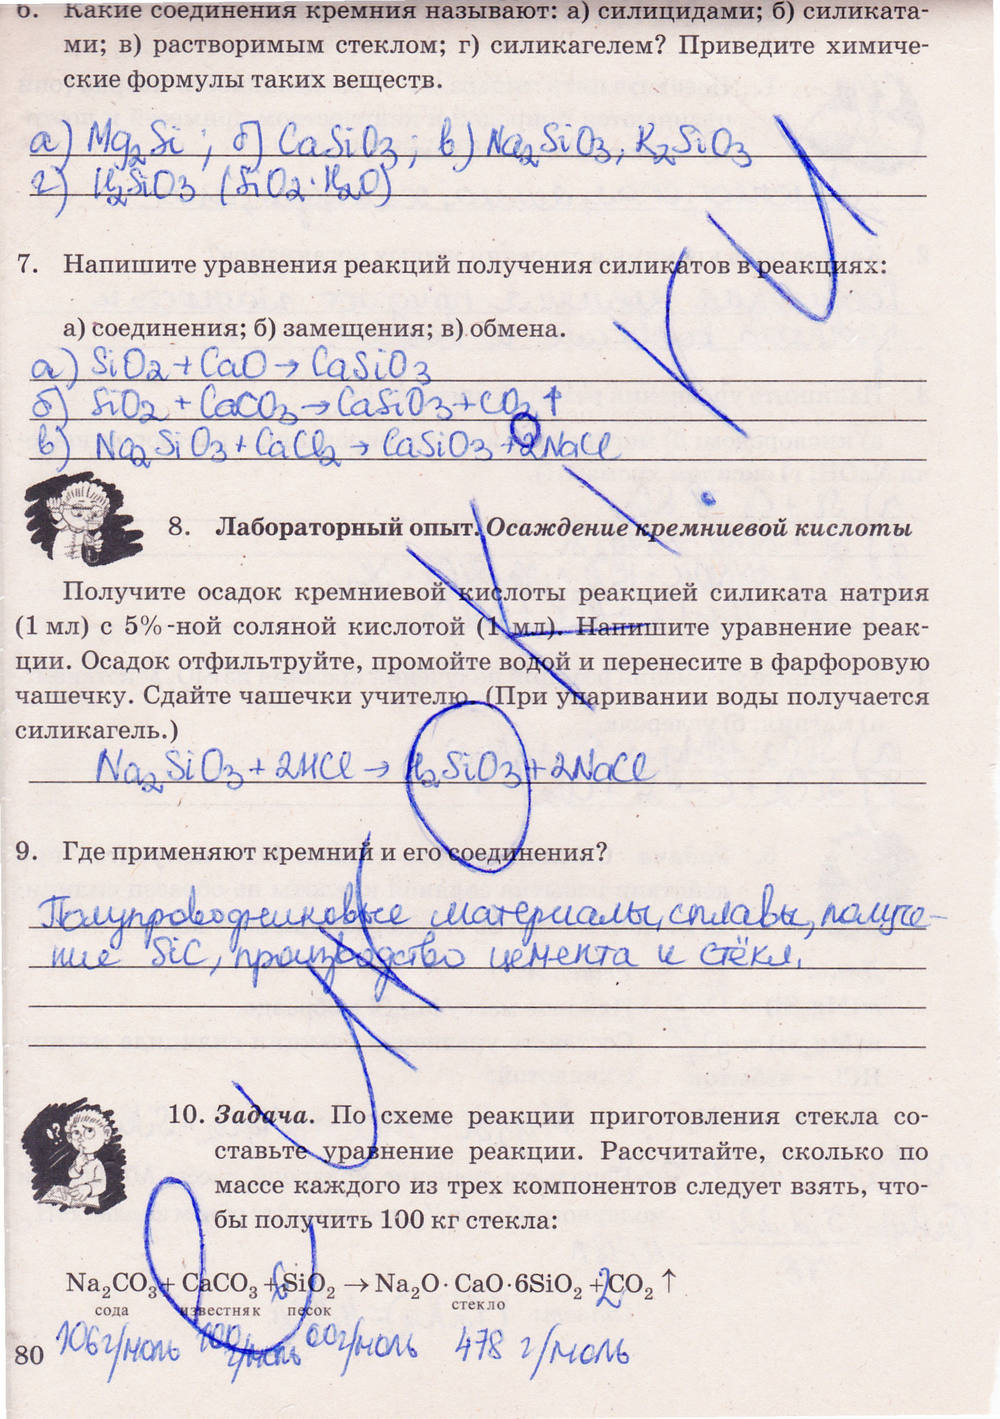 6. Какие соединения кремния называют: а) силицидами; б) силиката-
ми; в) растворимым стеклом; г) силикагелем? Приведите химиче-
ские формулы таких веществ.
а) Mg₂Si ; б) CaSiO₃ ; в) Na₂SiO₃, K₂SiO₃
г) H₂SiO₃ (SiO₂·H₂O)
7. Напишите уравнения реакций получения силикатов в реакциях:
а) соединения; б) замещения; в) обмена.
а) SiO₂ + CaO → CaSiO₃
б) SiO₂ + CaCO₃ → CaSiO₃ + CO₂↑
в) Na₂SiO₃ + CaCl₂ → CaSiO₃ + 2NaCl
8. Лабораторный опыт. Осаждение кремниевой кислоты
Получите осадок кремниевой кислоты реакцией силиката натрия
(1 мл) с 5%-ной соляной кислотой (1 мл). Напишите уравнение реак-
ции. Осадок отфильтруйте, промойте водой и перенесите в фарфоровую
чашечку. Сдайте чашечки учителю. (При упаривании воды получается
силикагель.)
Na₂SiO₃ + 2HCl → H₂SiO₃ + 2NaCl
9. Где применяют кремний и его соединения?
Полупроводниковые материалы, сплавы, получе-
ние SiC, производство цемента и стёкл.
10. Задача. По схеме реакции приготовления стекла со-
ставьте уравнение реакции. Рассчитайте, сколько по
массе каждого из трех компонентов следует взять, что-
бы получить 100 кг стекла:
Na₂CO₃ + CaCO₃ + 6SiO₂ → Na₂O·CaO·6SiO₂ + 2CO₂ ↑
сода известняк песок стекло
106г/моль 100 г/моль 60г/моль 478 г/моль
80